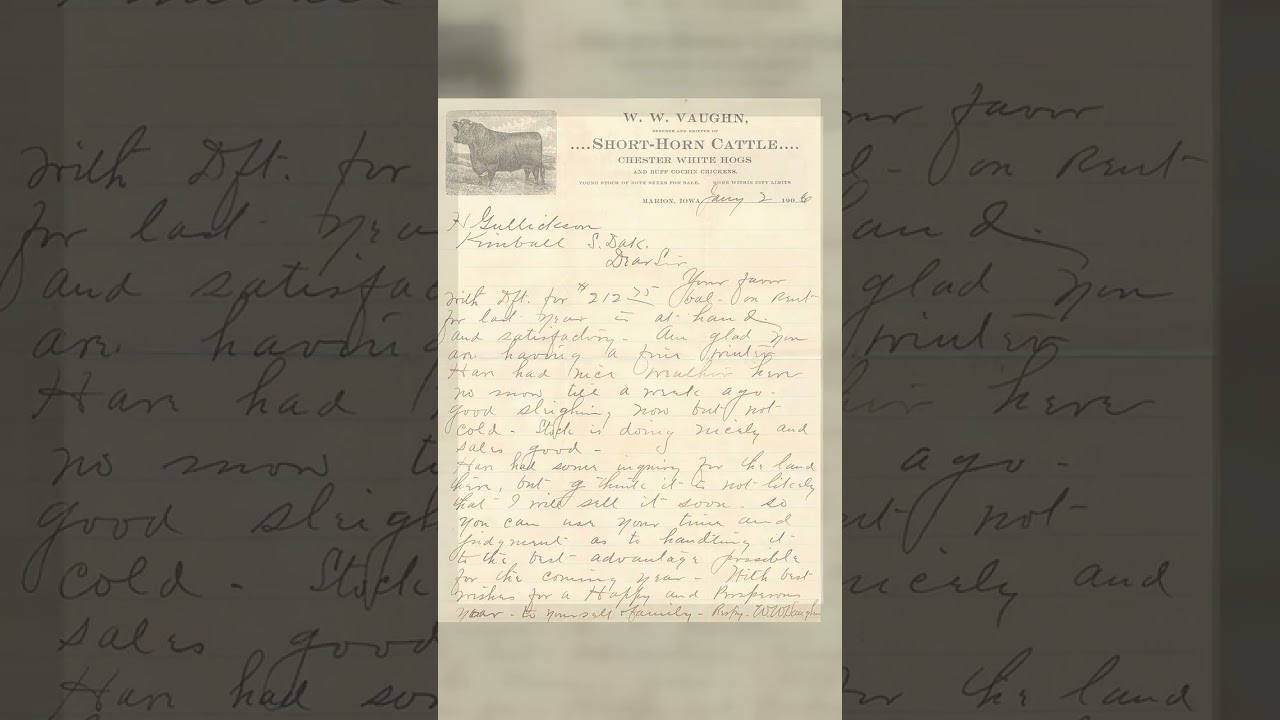 W. W. VAUGHN,
BREEDER AND SHIPPER OF
....SHORT-HORN CATTLE....
CHESTER WHITE HOGS
AND BUFF COCHIN CHICKENS.
YOUNG STOCK OF BOTH SEXES FOR SALE. HOME WITHIN CITY LIMITS
MARION, IOWA, Jany 2 1906
H Gullickson
Kimball S. Dak.
Dear Sir
Your favor
with Dft. for $212 75 bal- on Rent
for last year is at hand
and satisfactory. Am glad you
are having a fine winter
Have had nice weather here
no snow till a week ago -
good sleighing now but not
cold - Stock is doing nicely and
sales good -
Have had some inquiry for the land
here, but I think it is not likely
that I will sell it soon. so
you can use your time and
Judgment as to handling it
to the best advantage possible
for the coming year - With best
wishes for a Happy and Prosperous
year - to yourself & family - Respy. W W Vaughn